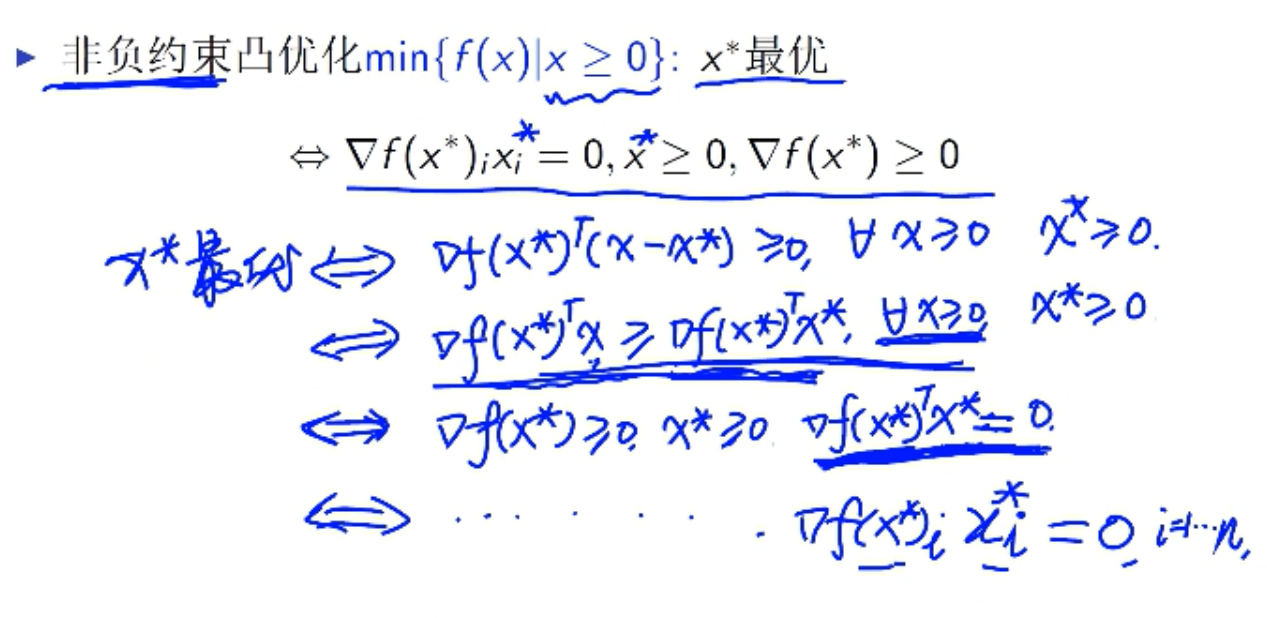 ▶ 非负约束凸优化min{f(x)|x ≥ 0}: x*最优
⇔ ∇f(x*)ᵢxᵢ* = 0, x* ≥ 0, ∇f(x*) ≥ 0
x*最优 ⇔ ∇f(x*)ᵀ(x-x*) ≥0, ∀ x≥0 x*≥0.
⇔ ∇f(x*)ᵀx ≥ ∇f(x*)ᵀx*, ∀x≥0, x*≥0
⇔ ∇f(x*)≥0, x*≥0 ∇f(x*)ᵀx*=0.
⇔ . . . . . . ∇f(x*)ᵢ xᵢ* = 0, i=1…n,